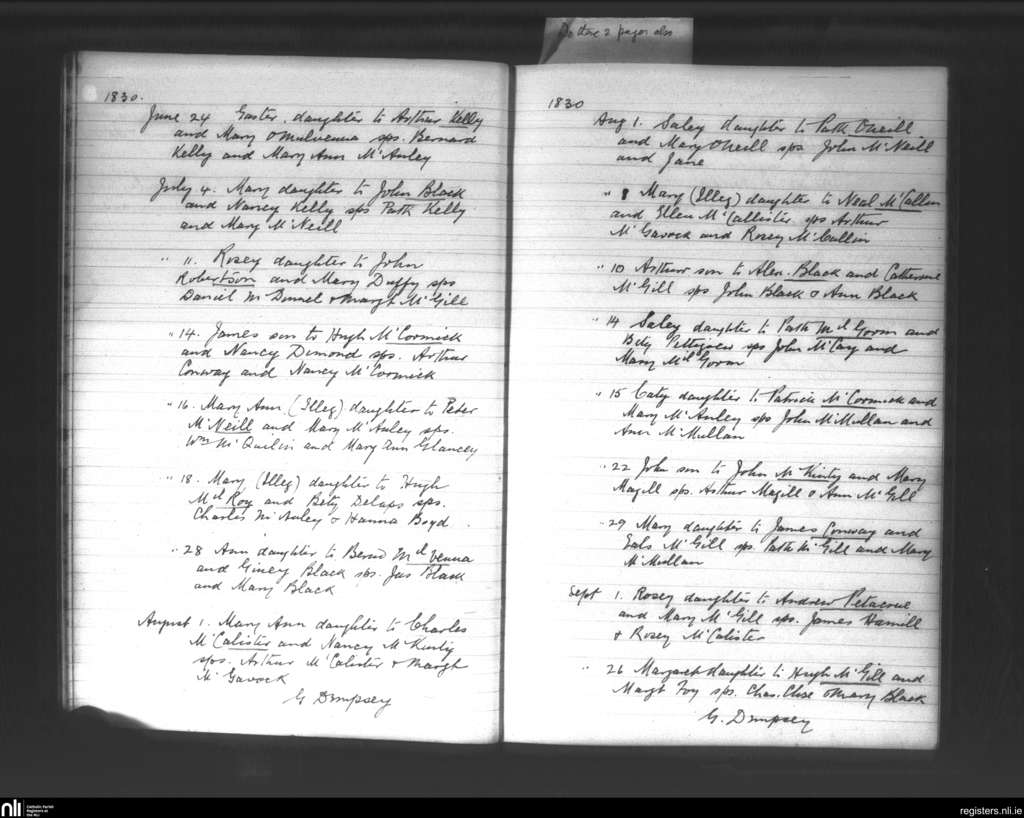 2 pages also
1830.
June 24 Easter, daughter to Arthur Kelly
and Mary O Mulvenna sps. Bernard
Kelly and Mary Ann McAuley
July 4. Mary daughter to John Black
and Nancy Kelly sps Patk Kelly
and Mary McNeill
" 11. Rosey daughter to John
Robertson and Mary Duffy sps
Daniel McDonnel & Margt McGill
" 14. James son to Hugh McCormick
and Nancy Dimond sps. Arthur
Conway and Nancy McCormick
" 16. Mary Ann (Illeg) daughter to Peter
McNeill and Mary McAuley sps.
Wm McQuilin and Mary Ann Glancey
" 18. Mary (Illeg) daughter to Hugh
McIlRoy and Bety Delaps sps.
Charles McAuley & Hanna Boyd
" 28 Ann daughter to Bernd McIlvenna
and Giney Black sps. Jas Black
and Mary Black
August 1. Mary Ann daughter to Charles
McCalister and Nancy McKinty
sps. Arthur McCalister & Margt
McGavock
G Dempsey
1830
Aug 1. Saley daughter to Patk ONeill
and Mary ONeill sps John McNeill
and Jane
" 8 Mary (Illeg) daughter to Neal McCallin
and Ellen McCallister sps Arthur
McGavock and Rosey McCullin
" 10 Arthur son to Alex. Black and Catherine
McGill sps John Black & Ann Black
" 14 Saley daughter to Patk McIlGorm and
Bety Pettigrew sps John McCay and
Mary McIlGorm
" 15 Caty daughter to Patrick McCormick and
Mary McAuley sps John McMullan and
Ann McMullan
" 22 John son to John McKinty and Mary
Magill sps. Arthur Magill & Ann McGill
" 29 Mary daughter to James Conway and
McGill sps. Patk McGill and Mary
McMullan
Sept 1. Rosey daughter to Andrew
and Mary McGill sps. James Hamill
& Rosey McCalister
" 26 Margaret daughter to Hugh McGill and
Margt Foy sps. Chas. Close & Mary Black
G. Dempsey
nli
Catholic Parish
Registers at
the NLI
registers.nli.ie